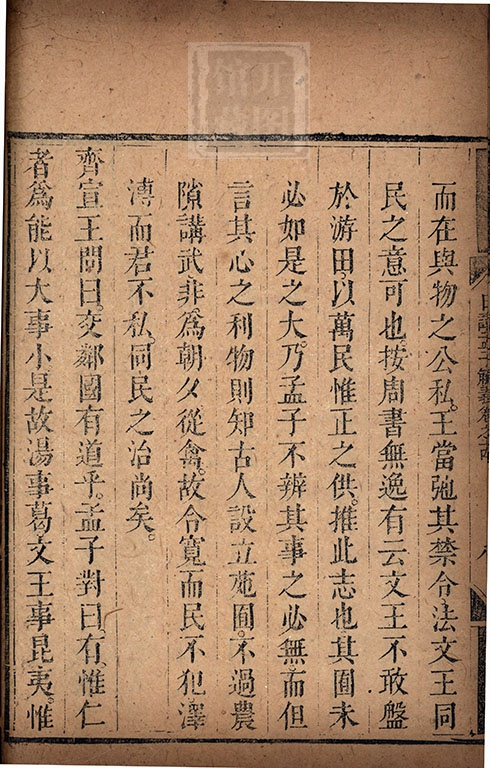 而在與物之公私王當弛其禁令法文王同
民之意可也按周書無逸有云文王不敢盤
於游田以萬民惟正之供推此志也其囿未
必如是之大乃孟子不辨其事之必無而但
言其心之利物則知古人設立苑囿不過農
隙講武非爲朝夕從禽故令寬而民不犯澤
溥而君不私同民之治尚矣
齊宣王問曰交鄰國有道乎孟子對曰有惟仁
者爲能以大事小是故湯事葛文王事昆夷惟